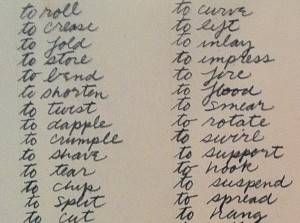 to roll
to crease
to fold
to store
to bend
to shorten
to twist
to dapple
to crumple
to shave
to tear
to chip
to split
to cut
to curve
to lift
to inlay
to impress
to fire
to flood
to smear
to rotate
to swirl
to support
to hook
to suspend
to spread
to hang